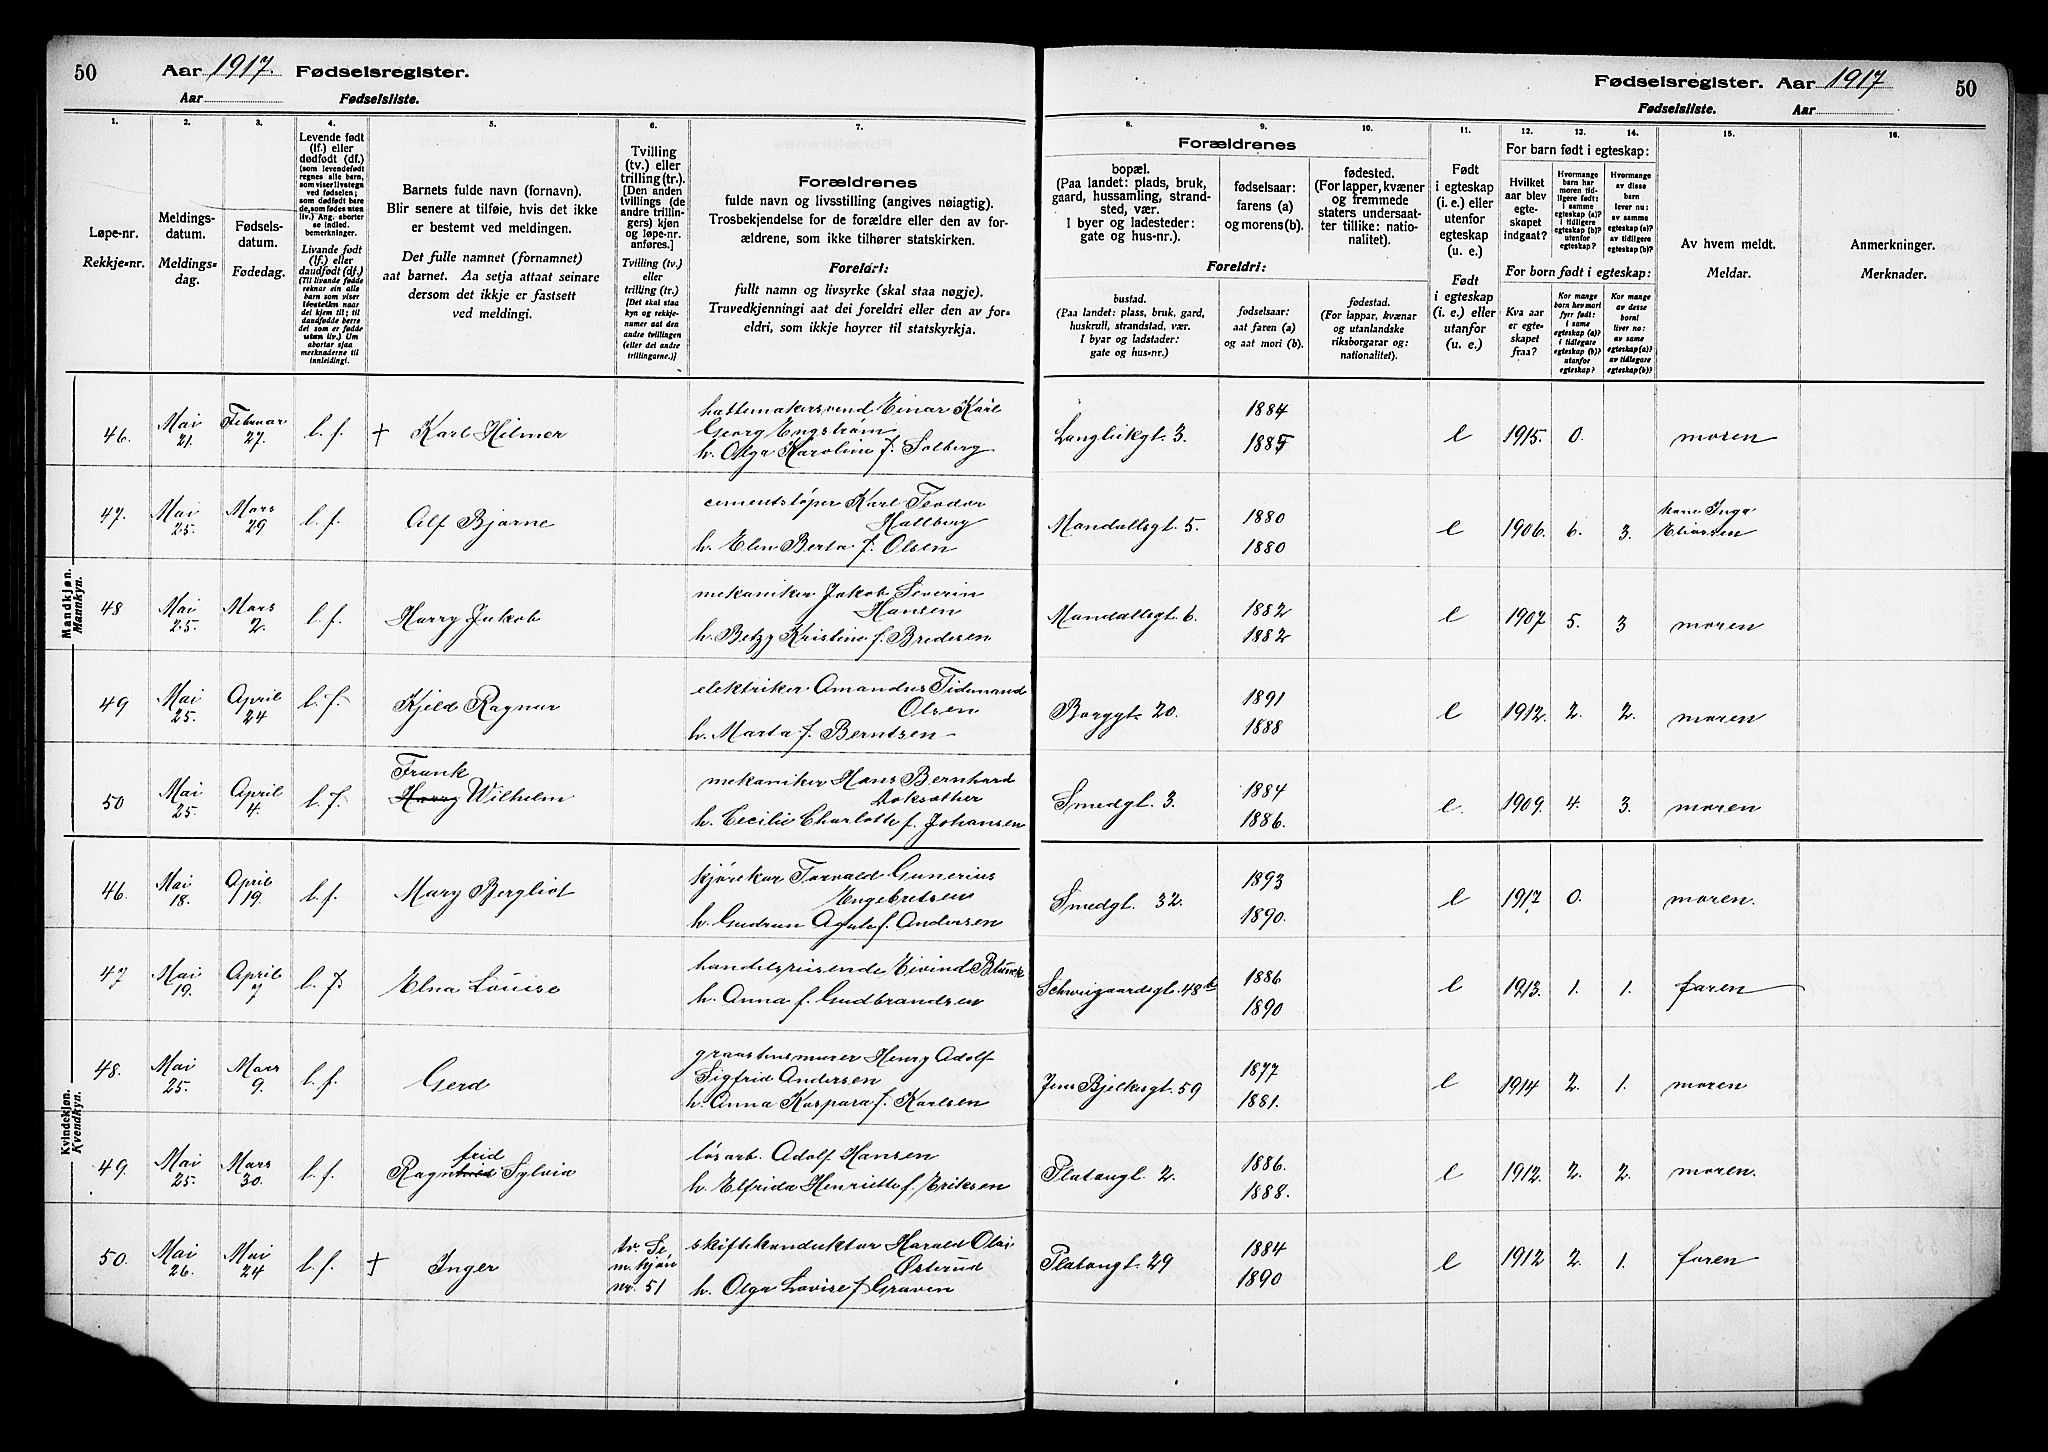 50 Aar 1917. Fødselsregister.
Aar Fødselsliste.
Fødselsregister. Aar 1917 50
Fødselsliste. Aar
1. 2. 3. 4. 5. 6. 7. 8. 9. 10. 11. 12. 13. 14. 15. 16.
Løpe-nr.
Rekkje-nr.
Meldings-
datum.
Meldings-
dag.
Fødsels-
datum.
Fødedag.
Levende født
(lf.) eller
dødfødt (df.)
(som levendefødt
regnes alle barn,
som viser livstegn
ved fødselen;
som dødfødt bare
de, som fødes uten
liv.) Ang. aborter
se indled.
bemerkninger.
Livande født
(lf.) eller
daudfødt (df.)
(Til livande fødde
reknar ein alle
barn som viser
livsteikn naar
dei kjem til; til
daudfødde berre
dei som er fødde
utan liv.) Um
abortar sjaa
merknaderne til
innleidingi.
Barnets fulde navn (fornavn).
Blir senere at tilføie, hvis det ikke
er bestemt ved meldingen.
Det fulle namnet (fornamnet)
aat barnet. Aa setja attaat seinare
dersom det ikkje er fastsett
ved meldingi.
Tvilling
(tv.) eller
trilling (tr.).
[Den anden
tvillings (de
andre trillin-
gers) kjøn
og løpe-nr.
anføres.]
Tvilling (tv.)
eller
trilling (tr.)
[Det skal staa
kyn og rekkje-
numer aat den
andre tvillingen
(eller dei andre
trillingarne.)]
Forældrenes
fulde navn og livsstilling (angives nøiagtig).
Trosbekjendelse for de forældre eller den av for-
ældrene, som ikke tilhører statskirken.
Foreldri:
fullt namn og livsyrke (skal staa nøgje).
Truvedkjenningi aat dei foreldri eller den av for-
eldri, som ikkje høyrer til statskyrkja.
Forældrenes
bopæl.
(Paa landet: plads, bruk,
gaard, hussamling, strand-
sted, vær.
I byer og ladesteder:
gate og hus-nr.).
fødselsaar:
farens (a)
og morens (b).
fødested.
(For lapper, kvæner
og fremmede
staters undersaat-
ter tillike: natio-
nalitet).
Foreldri:
bustad.
(Paa landet: plass, bruk, gard,
huskrull, strandstad, vær.
I byar og ladstader:
gate og hus-nr.)
fødselsaar:
aat faren (a)
og aat mori (b).
fødestad.
(For lappar, kvænar
og utanlandske
riksborgarar og:
nationalitet).
Født
i egteskap
(i. e.) eller
utenfor
egteskap
(u. e.)
Født
i egteskap
(i. e.) eller
utanfor
(u. e.)
For barn født i egteskap:
Hvilket
aar blev
egte-
skapet
indgaat?
Hvormange
barn har
moren tid-
ligere født:
i samme
egteskap (a)?
i tidligere
egteskap (b)?
utenfor
egteskap?
Hvormange
av disse
barn
lever nu:
av samme
egteskap (a)?
av tidligere
egteskap (b)?
For born født i egteskap:
Kva aar
er egte-
skapet
fraa?
Kor mange
born hev mori
fyrr født:
i same
egteskap (a)?
i tidlegare
egteskap (b)?
utanfor
egteskap?
Kor mange
av desse
borni
liver no:
av same
egteskap (a)?
av tidlegare
egteskap (b)?
Av hvem meldt.
Meldar.
Anmerkninger.
Merknader.
Mandkjøn.
Mannkyn.
46. Mai 21. Februar 27. l. f. † Karl Hilmer
hattemakersvend Einar Karl
Georg Engstrøm
h. Olga Karoline f. Solberg
Langleikgt. 3. 1884 1885 e 1915. 0. moren
47. Mai 25. Mars 29 l. f. Alf Bjarne
cementstøper Karl Teodor
Hallberg
h. Elen Berta f. Olsen
Mandallsgt. 5. 1880 1880 e 1906. 6. 3. kone Inga Eliassen
48 Mai 25. Mars 2. l. f. Harry Jakob
mekaniker Jakob Severin
Hansen
h. Betzy Kristine f. Bredesen
Mandallsgt. 6 1882 1882 e 1907 5. 3 moren
49 Mai 25. April 24 l. f. Kjeld Ragnar
elektriker Amandus Tidemand
Olsen
h. Marta f. Berntsen
Borggt. 20. 1891 1888 e 1912. 2. 2. moren
50 Mai 25. April 4. l. f. Frank
Harry Wilhelm
mekaniker Hans Bernhard
h. Cecilie Charlotte f. Johansen
Smedgt. 3. 1884 1886. e 1909. 4. 3. moren
Kvindekjøn.
Kvendkyn.
46. Mai 18. April 19. l. f. Mary Bergliot
kjørekar Torvald Gunerius
Engebretsen
h. Gudrun Agate f. Andersen
Smedgt. 32. 1893 1890. e 1917. 0. moren.
47 Mai 19. April 7 l. f. Elna Louise
handelsreisende Eivind Blunck
h. Anna f. Gudbrandsen
Schweigaardsgt. 48b 1886 1890 e 1913. 1. 1. faren
48. Mai 25. Mars 9. l. f. Gerd
graastensmurer Henry Adolf
Sigfrid Andersen
h. Anna Kaspara f. Karlsen
Jens Bjelkesgt. 59 1877 1881. e 1914 2. 1. moren
49. Mai 25. Mars 30. l. f. frid
Ragnhild Sylvia
løsarb. Adolf Hansen
h. Elfrida Henriette f. Eriksen
Platongt. 2. 1886. 1888. e 1912. 2. 2. moren.
50. Mai 26. Mai 24 l. f. † Inger
tv. Se
m. kjøn
nr. 51
skiftekonduktør Harald Olai
Østerud
h. Olga Lovise f Graven
Platongt. 29 1884 1890 e 1912 2. 1. faren